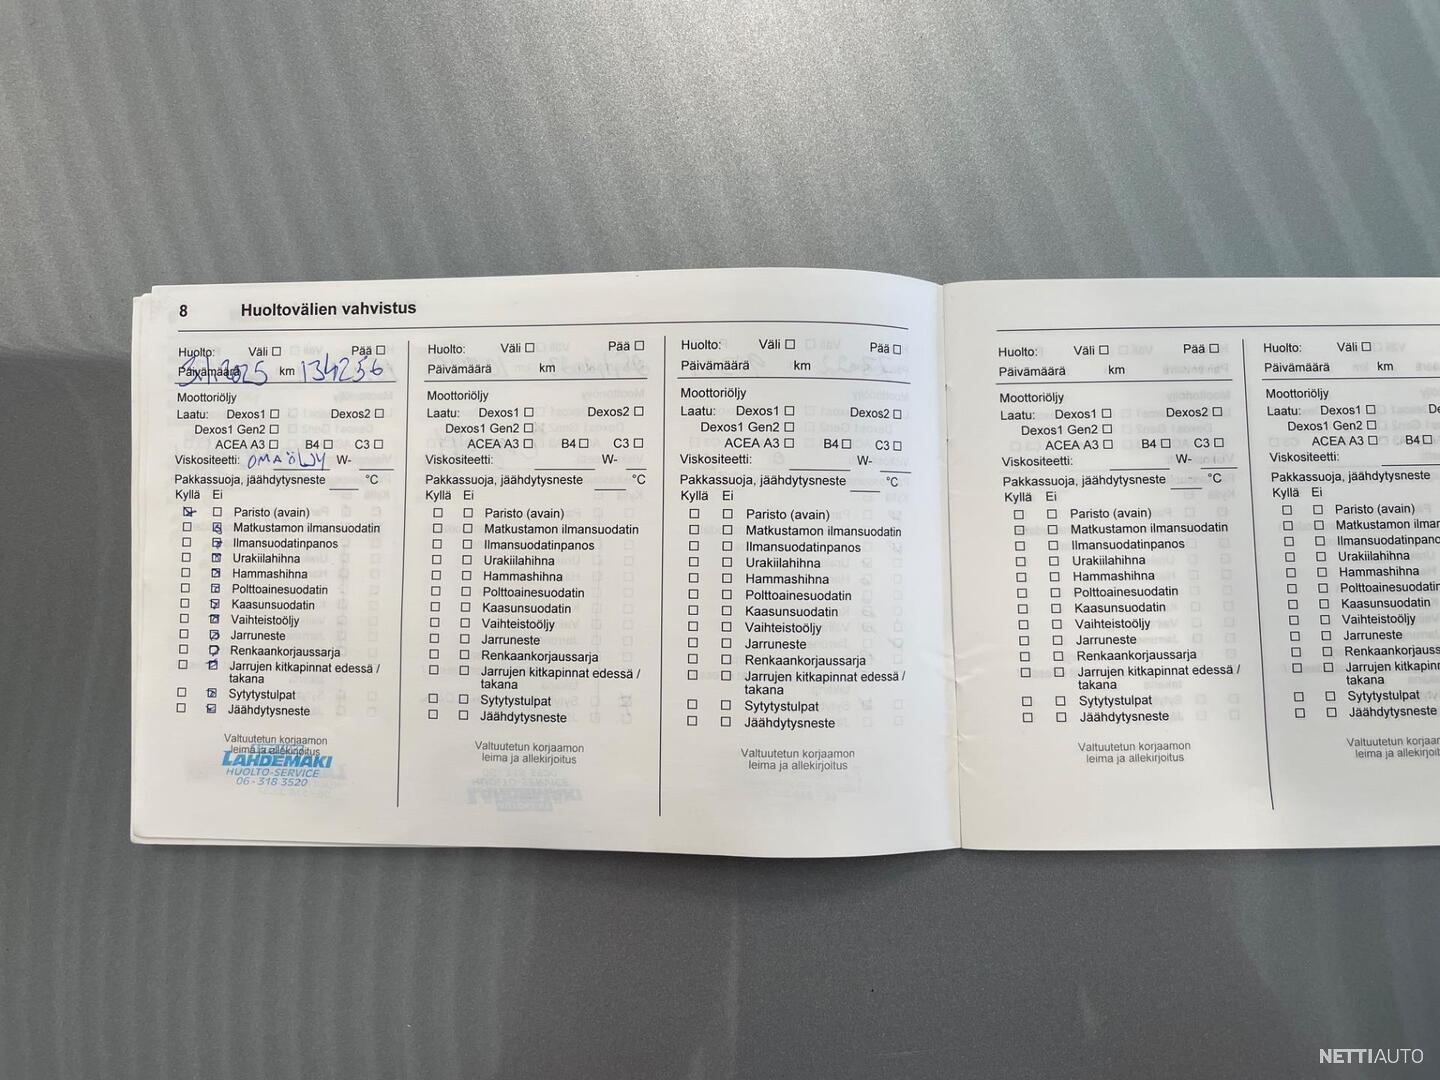 8 Huoltovälien vahvistus
Huolto: Väli ☐ Pää ☐
Päivämäärä km 134256
Moottoriöljy
Laatu: Dexos1 ☐ Dexos2 ☐
Dexos1 Gen2 ☐
ACEA A3 ☐ B4 ☐ C3 ☐
Viskositeetti: OMA ÖLJY W-
Pakkassuoja, jäähdytysneste °C
Kyllä Ei
Paristo (avain)
Matkustamon ilmansuodatin
Ilmansuodatinpanos
Urakiilahihna
Hammashihna
Polttoainesuodatin
Kaasunsuodatin
Vaihteistoöljy
Jarruneste
Renkaankorjaussarja
Jarrujen kitkapinnat edessä /
takana
Sytytystulpat
Jäähdytysneste
Valtuutetun korjaamon
leima ja allekirjoitus
LÄHDEMÄKI
HUOLTO-SERVICE
06-318 3520
Huolto: Väli ☐ Pää ☐
Päivämäärä km
Moottoriöljy
Laatu: Dexos1 ☐ Dexos2 ☐
Dexos1 Gen2 ☐
ACEA A3 ☐ B4 ☐ C3 ☐
Viskositeetti: W-
Pakkassuoja, jäähdytysneste °C
Kyllä Ei
Paristo (avain)
Matkustamon ilmansuodatin
Ilmansuodatinpanos
Urakiilahihna
Hammashihna
Polttoainesuodatin
Kaasunsuodatin
Vaihteistoöljy
Jarruneste
Renkaankorjaussarja
Jarrujen kitkapinnat edessä /
takana
Sytytystulpat
Jäähdytysneste
Valtuutetun korjaamon
leima ja allekirjoitus
Huolto: Väli ☐ Pää ☐
Päivämäärä km
Moottoriöljy
Laatu: Dexos1 ☐ Dexos2 ☐
Dexos1 Gen2 ☐
ACEA A3 ☐ B4 ☐ C3 ☐
Viskositeetti: W-
Pakkassuoja, jäähdytysneste °C
Kyllä Ei
Paristo (avain)
Matkustamon ilmansuodatin
Ilmansuodatinpanos
Urakiilahihna
Hammashihna
Polttoainesuodatin
Kaasunsuodatin
Vaihteistoöljy
Jarruneste
Renkaankorjaussarja
Jarrujen kitkapinnat edessä /
takana
Sytytystulpat
Jäähdytysneste
Valtuutetun korjaamon
leima ja allekirjoitus
Huolto: Väli ☐ Pää ☐
Päivämäärä km
Moottoriöljy
Laatu: Dexos1 ☐ Dexos2 ☐
Dexos1 Gen2 ☐
ACEA A3 ☐ B4 ☐ C3 ☐
Viskositeetti: W-
Pakkassuoja, jäähdytysneste °C
Kyllä Ei
Paristo (avain)
Matkustamon ilmansuodatin
Ilmansuodatinpanos
Urakiilahihna
Hammashihna
Polttoainesuodatin
Kaasunsuodatin
Vaihteistoöljy
Jarruneste
Renkaankorjaussarja
Jarrujen kitkapinnat edessä /
takana
Sytytystulpat
Jäähdytysneste
Valtuutetun korjaamon
leima ja allekirjoitus
Huolto: Väli ☐
Päivämäärä km
Moottoriöljy
Laatu: Dexos1 ☐
Dexos1 Gen2 ☐
ACEA A3 ☐ B4 ☐
Viskositeetti:
Pakkassuoja, jäähdytysneste
Kyllä Ei
Paristo (avain)
Matkustamon
Ilmansuodatinpanos
Urakiilahihna
Hammashihna
Kaasunsuodatin
Vaihteistoöljy
Jarruneste
Jarrujen
takana
Sytytystulpat
Jäähdytysneste
Valtuutetun
leima ja
NETTIAUTO